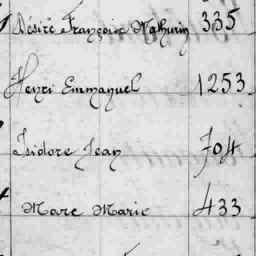 Désiré Françoise Mathurin 335
Henri Emmanuel 1253
Isidore Jean 704
Marc Marie 433